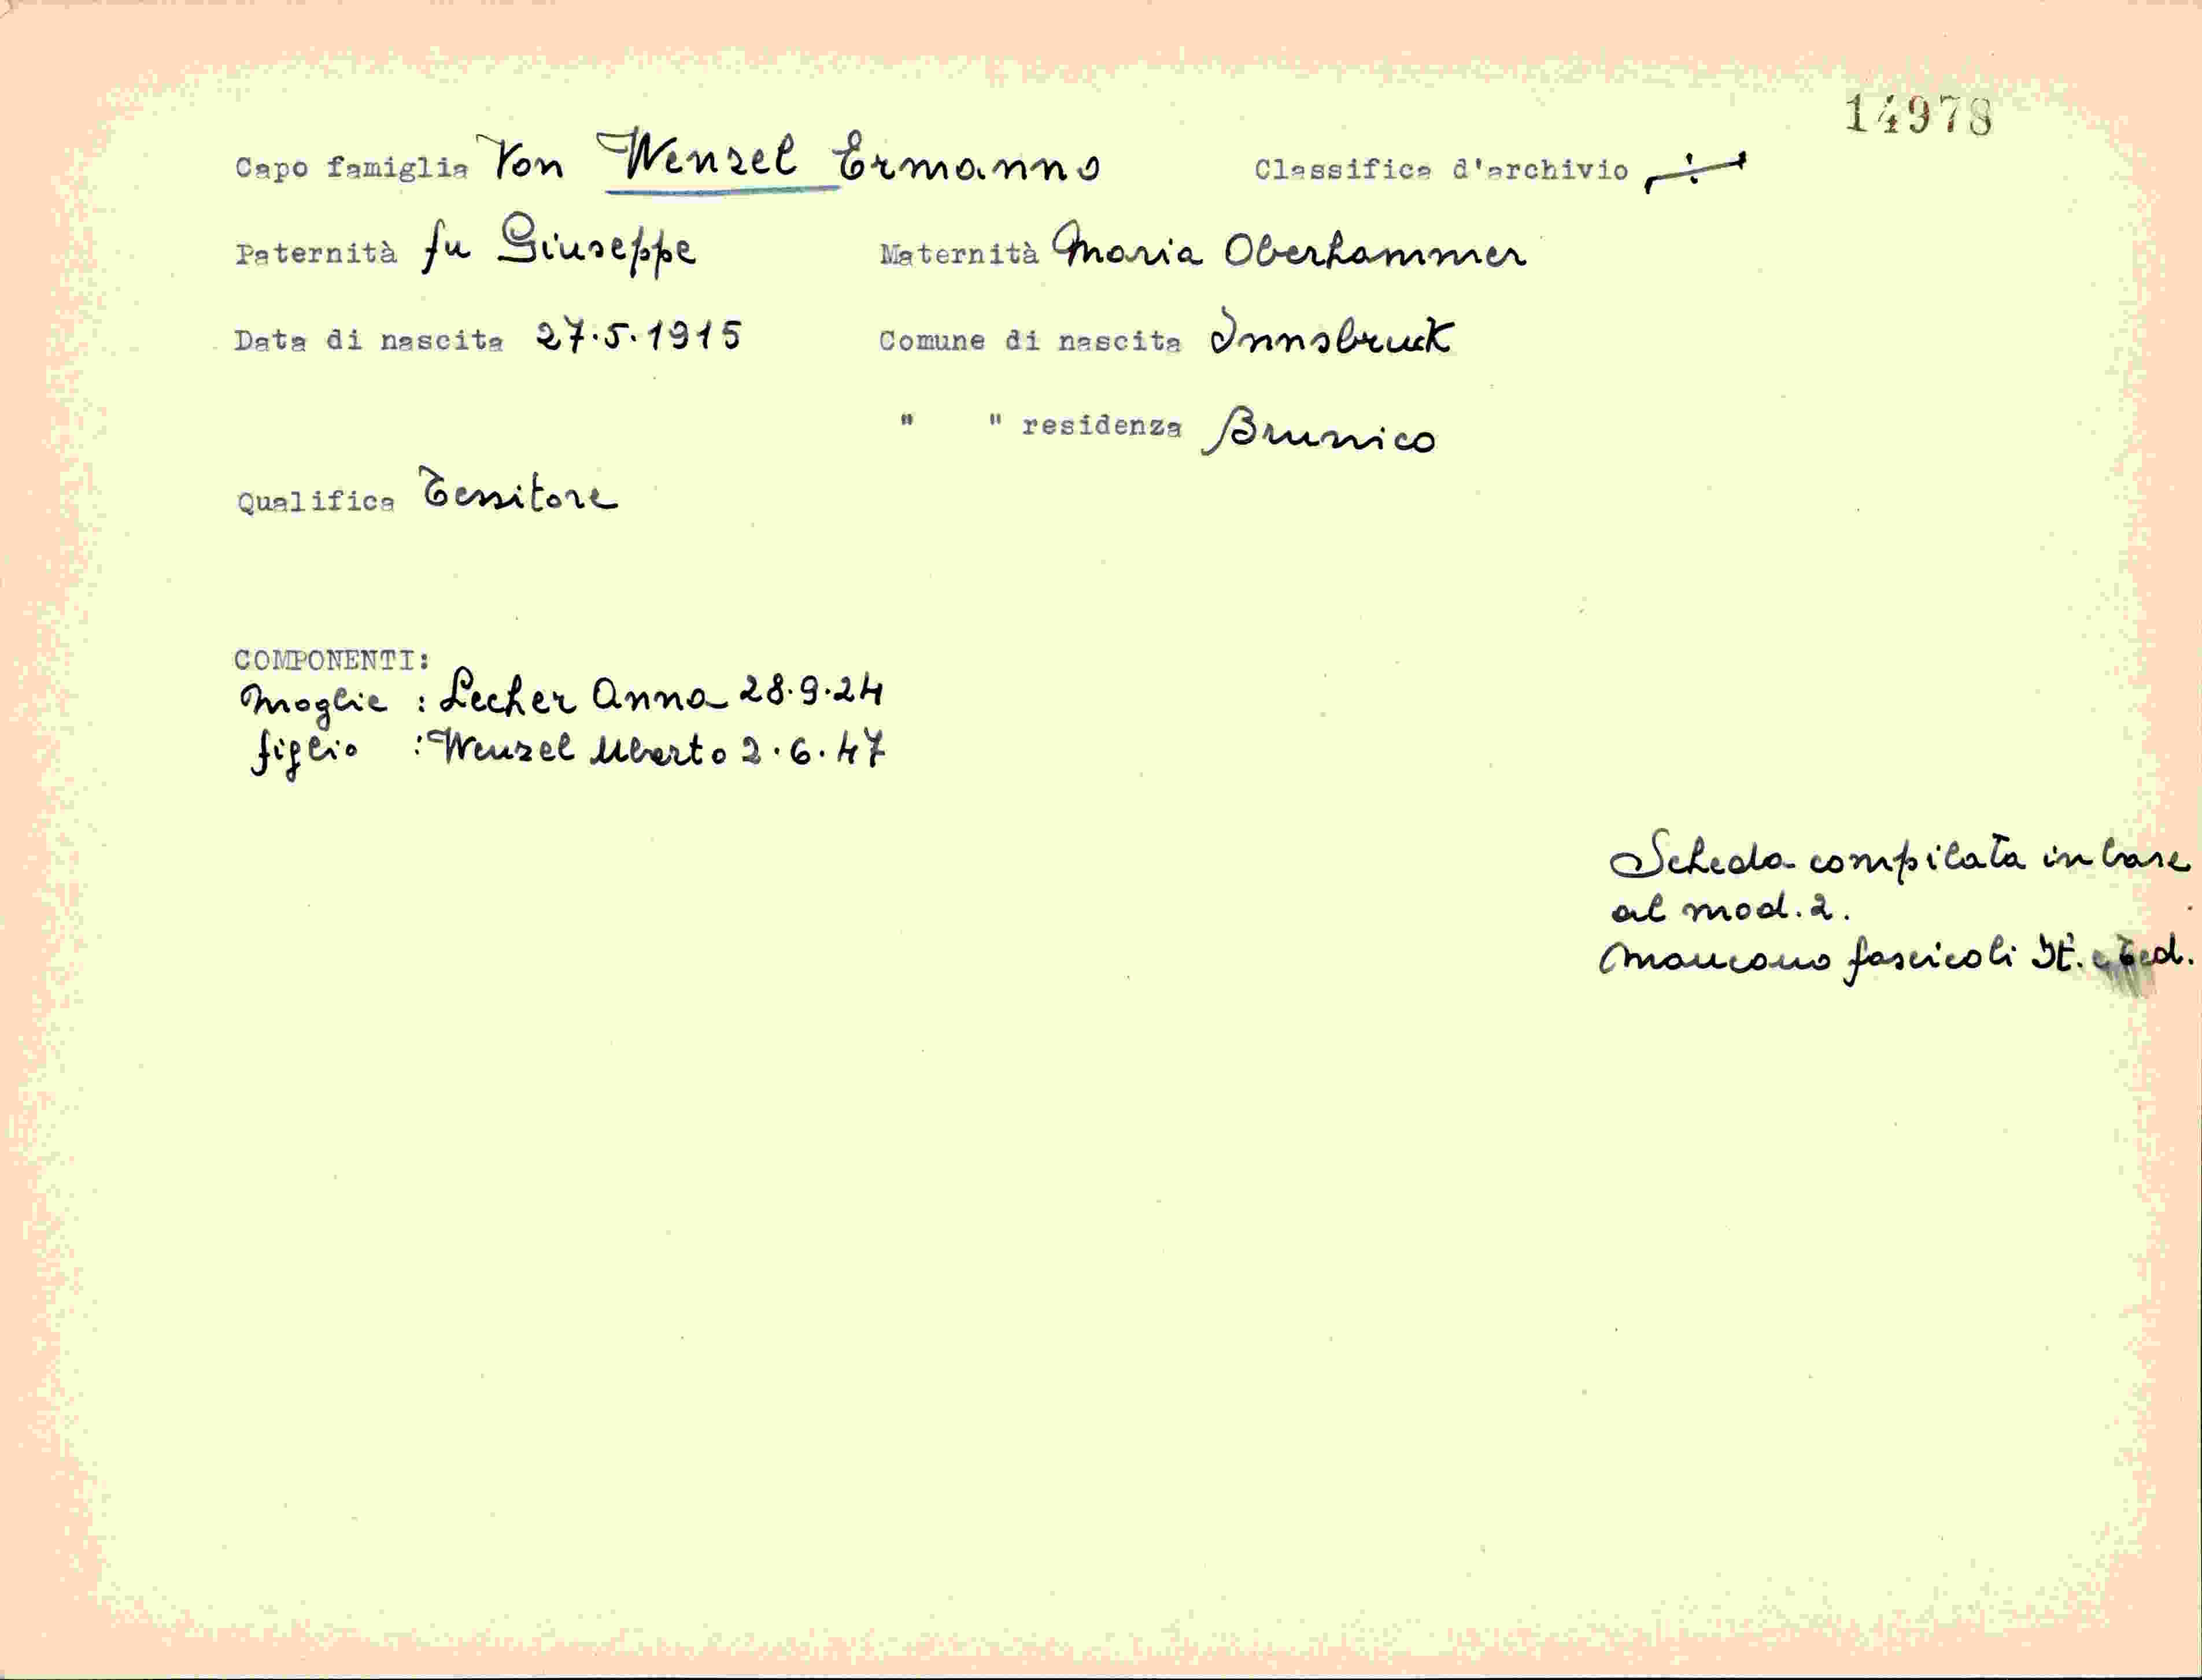 14978
Capo famiglia Von Wenzel Ermanno Classifica d'archivio ÷
Paternità fu Giuseppe Maternità Maria Oberhammer
Data di nascita 27.5.1915 Comune di nascita Innsbruck
" " residenza Brunico
Qualifica Tessitore
COMPONENTI:
Moglie : Lecher Anna 28.9.24
figlio : Wenzel Uberto 2.6.47
Scheda compilata in base
al mod. 2.
Mancano fascicoli It. e Ted.